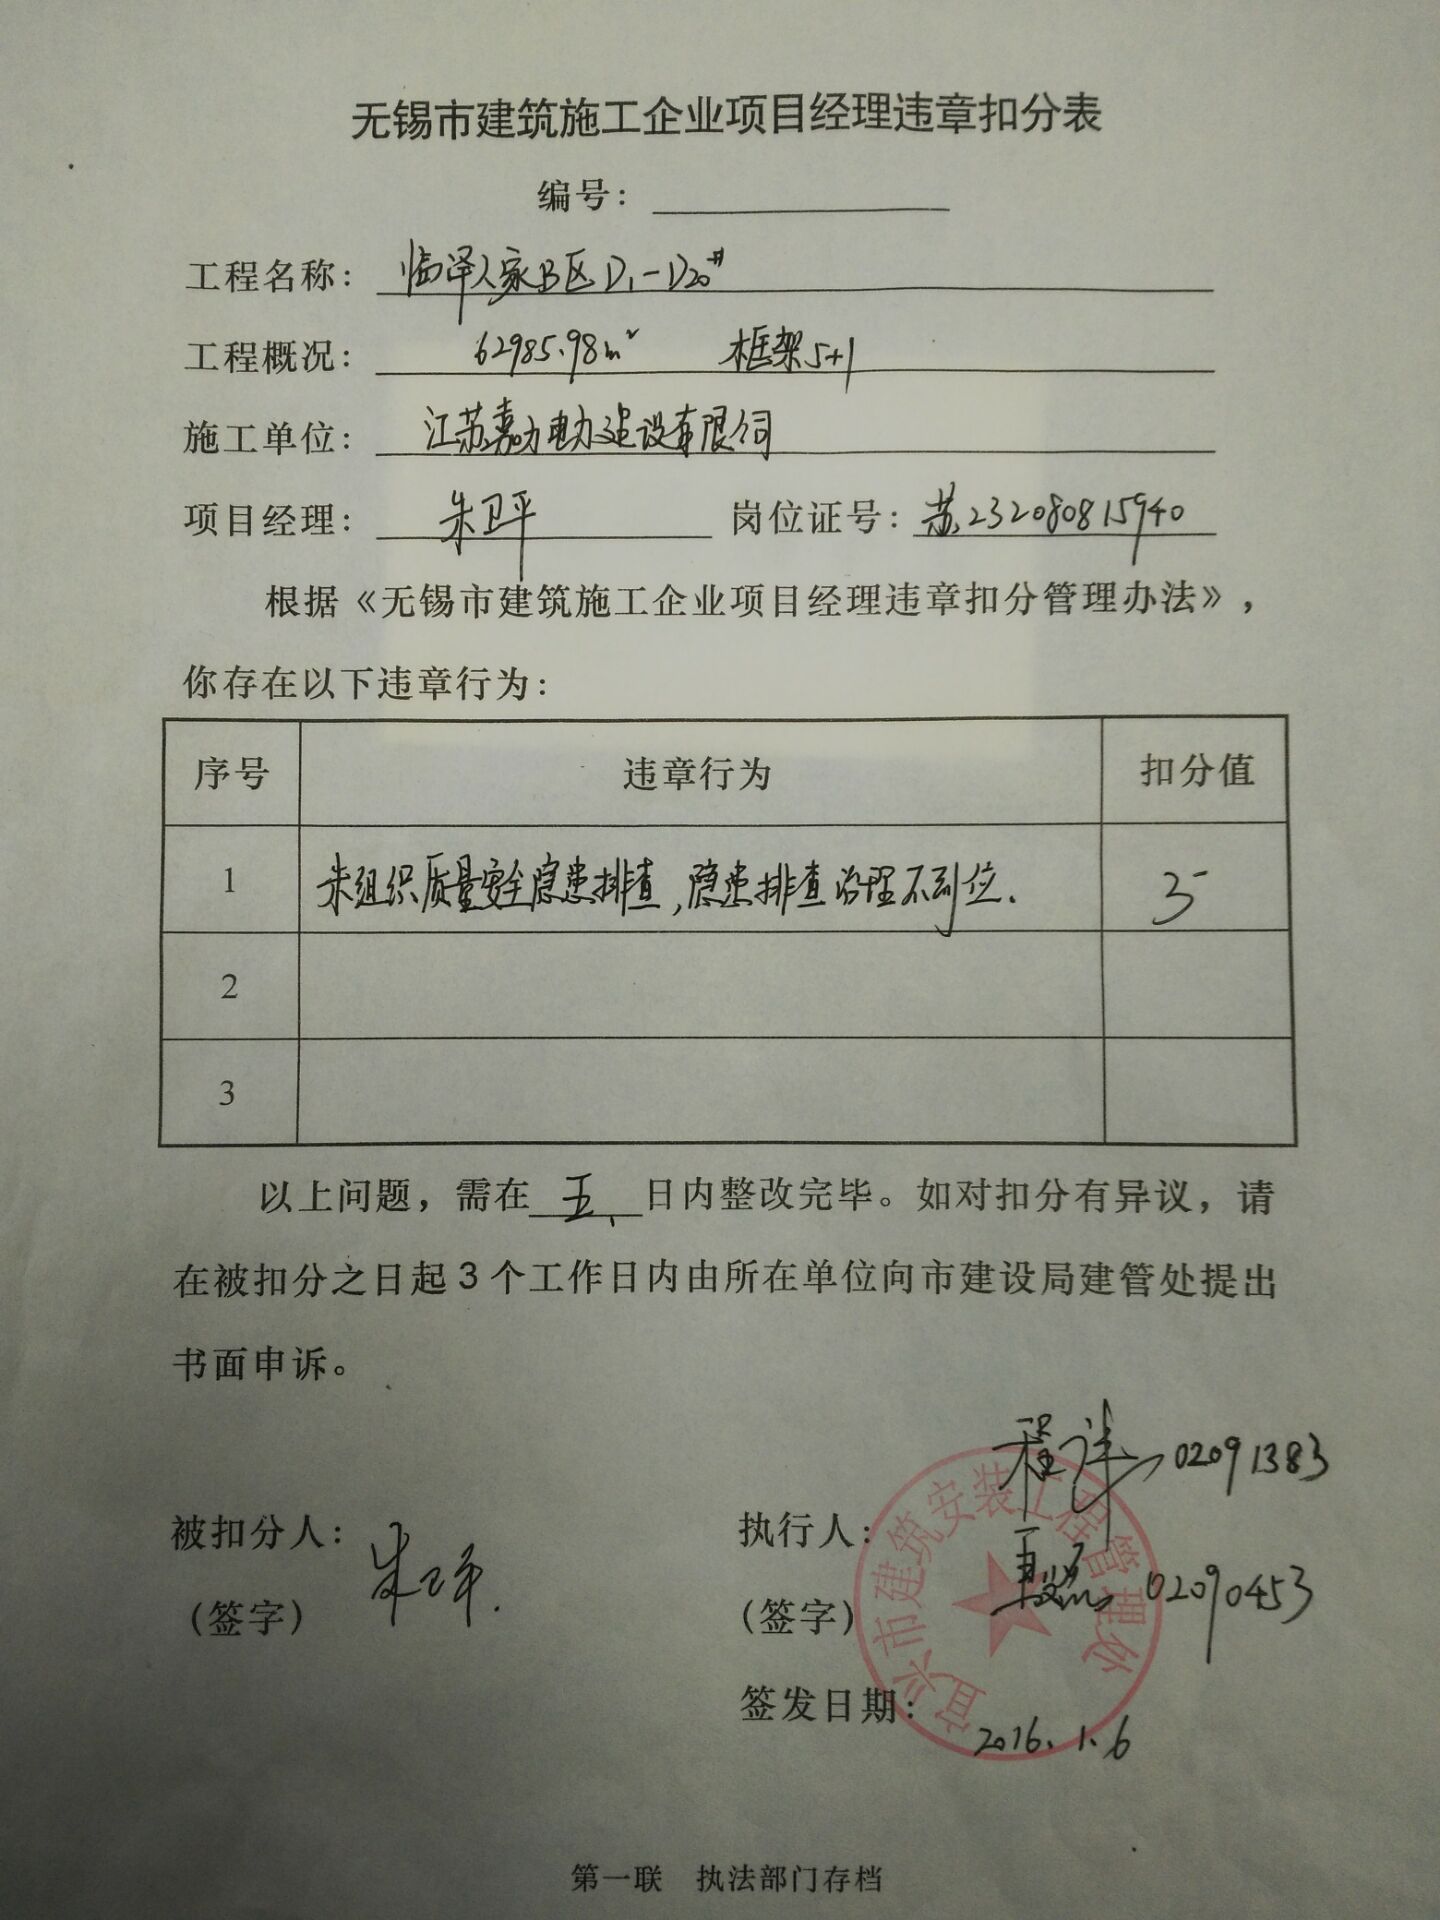 无锡市建筑施工企业项目经理违章扣分表
编号：
工程名称： 临泽人家B区D1-D20#
工程概况： 62985.98m² 框架5+1
施工单位： 江苏嘉力电力建设有限公司
项目经理： 朱卫平 岗位证号： 苏232080815940
根据《无锡市建筑施工企业项目经理违章扣分管理办法》，
你存在以下违章行为：
序号 违章行为 扣分值
1 未组织质量安全隐患排查，隐患排查治理不到位. 5
2
3
以上问题，需在五、日内整改完毕。如对扣分有异议，请
在被扣分之日起3个工作日内由所在单位向市建设局建管处提出
书面申诉。
02091383
被扣分人： 朱卫平. 执行人：
02090453
（签字） （签字）
签发日期： 2016.1.6
宜兴市建筑安装工程管理处
第一联 执法部门存档